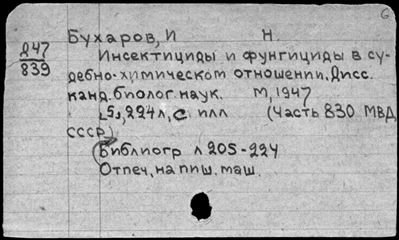 Бухаров, И Н.
Д47
839
Инсектициды и фунгициды в су-
дебно-химическом отношении. Дисс.
канд. биолог. наук. М, 1947
[5], 224 л, с илл (Часть 830 МВД
СССР)
Библиогр л 205-224
Отпеч, на пиш. маш.